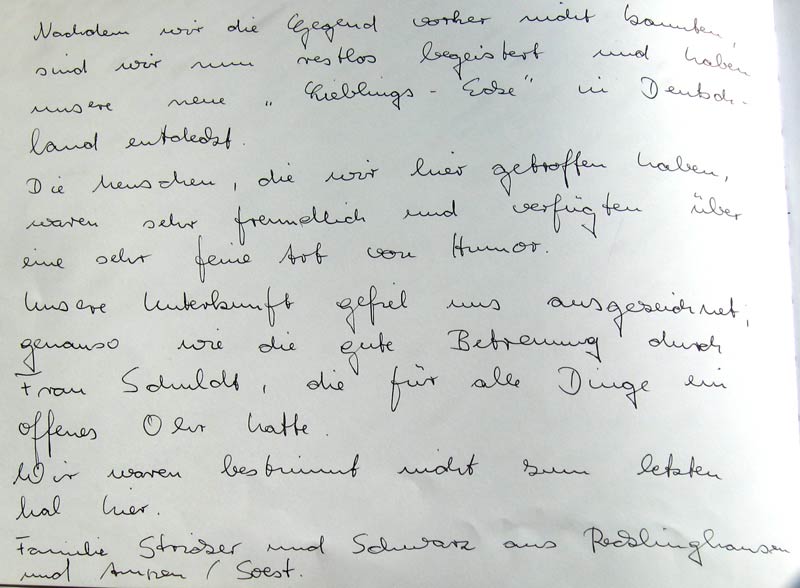 Nachdem wir die Gegend vorher nicht kannten,
sind wir nun restlos begeistert und haben
unsere neue „Lieblings-Ecke" in Deutsch-
land entdeckt.
Die Menschen, die wir hier getroffen haben,
waren sehr freundlich und verfügten über
eine sehr feine Art von Humor.
Unsere Unterkunft gefiel uns ausgezeichnet,
genauso wie die gute Betreuung durch
Frau Schuldt, die für alle Dinge ein
offenes Ohr hatte.
Wir waren bestimmt nicht zum letzten
Mal hier.
Familie und Schwarz aus Recklinghausen
und Ampen / Soest.